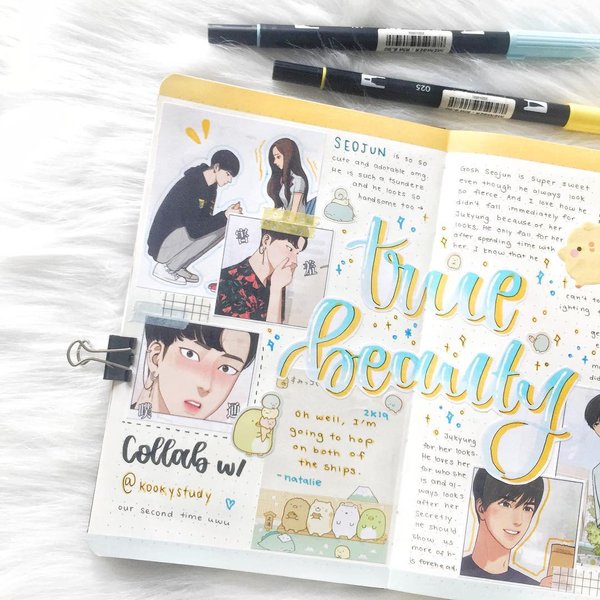 025
SEOJUN is so so
cute and adorable omg.
He is such a tsundere
and he looks so
handsome too →
true
beauty
Gosh Seojun is super sweet
even though he always look
so fierce. And I love how he
didn't fall immediately for
Jukyung because of her
looks. He only fall for her
after spending time with
her. I know that he
can't to
ighting
ge
m
did
2K19
oh well, I'm
going to hop
on both of
the ships.
-natalie
Collab w/
@kookystudy
our second time uwu
Jukyung
for her looks.
He loves her
for who she
is and al-
ways looks
after her
secretly.
He should
show us
more of h-
is forehead.